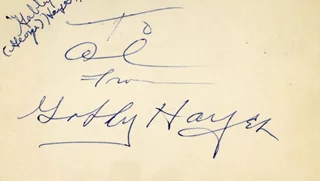 "Gabby"
(George) Hayes
To
Al
from
Gabby Hayes